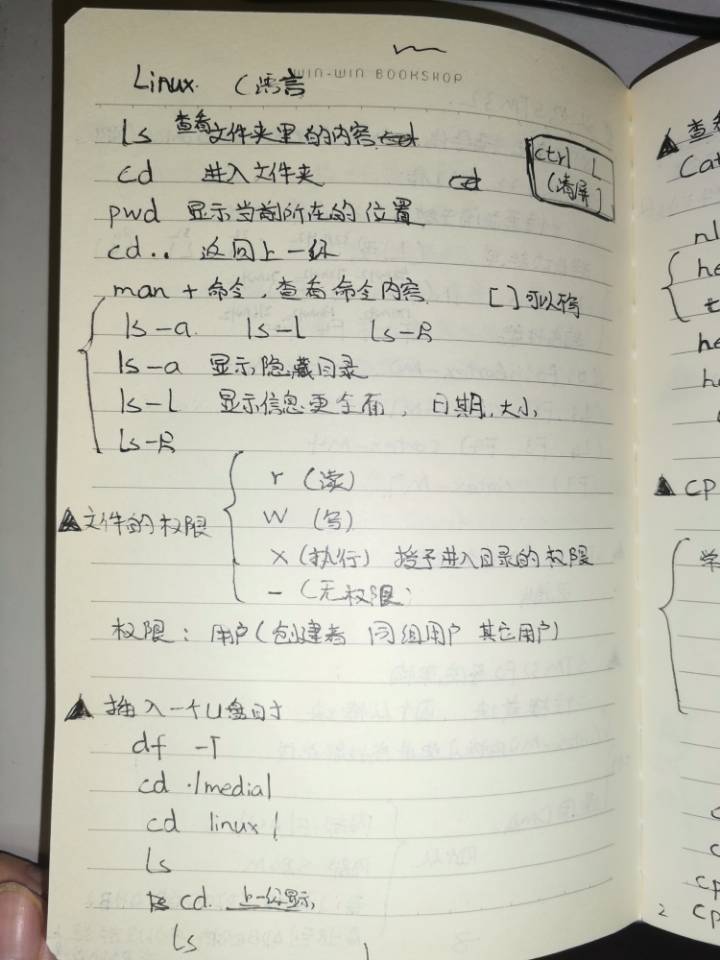 WIN-WIN BOOKSHOP
Linux. C语言
ls 查看文件夹里的内容
cd 进入文件夹
ctrl L
(清屏)
pwd 显示当前所在的位置
cd.. 返回上一级
man + 命令，查看命令内容 [ ]可以
ls-a. ls-l ls-R
ls-a 显示隐藏目录
ls-l 显示信息更全面，日期，大小
ls-R
▲文件的权限
r (读)
w (写)
x (执行) 授予进入目录的权限
- (无权限)
权限：用户(创建者 同组用户 其它用户)
▲ 插入一个U盘时
df -T
cd ./media/
cd linux/
ls
cd. 上一级显示
ls
▲ 查看
cat
nl
he
he
▲ cp
学
2
cp
cp